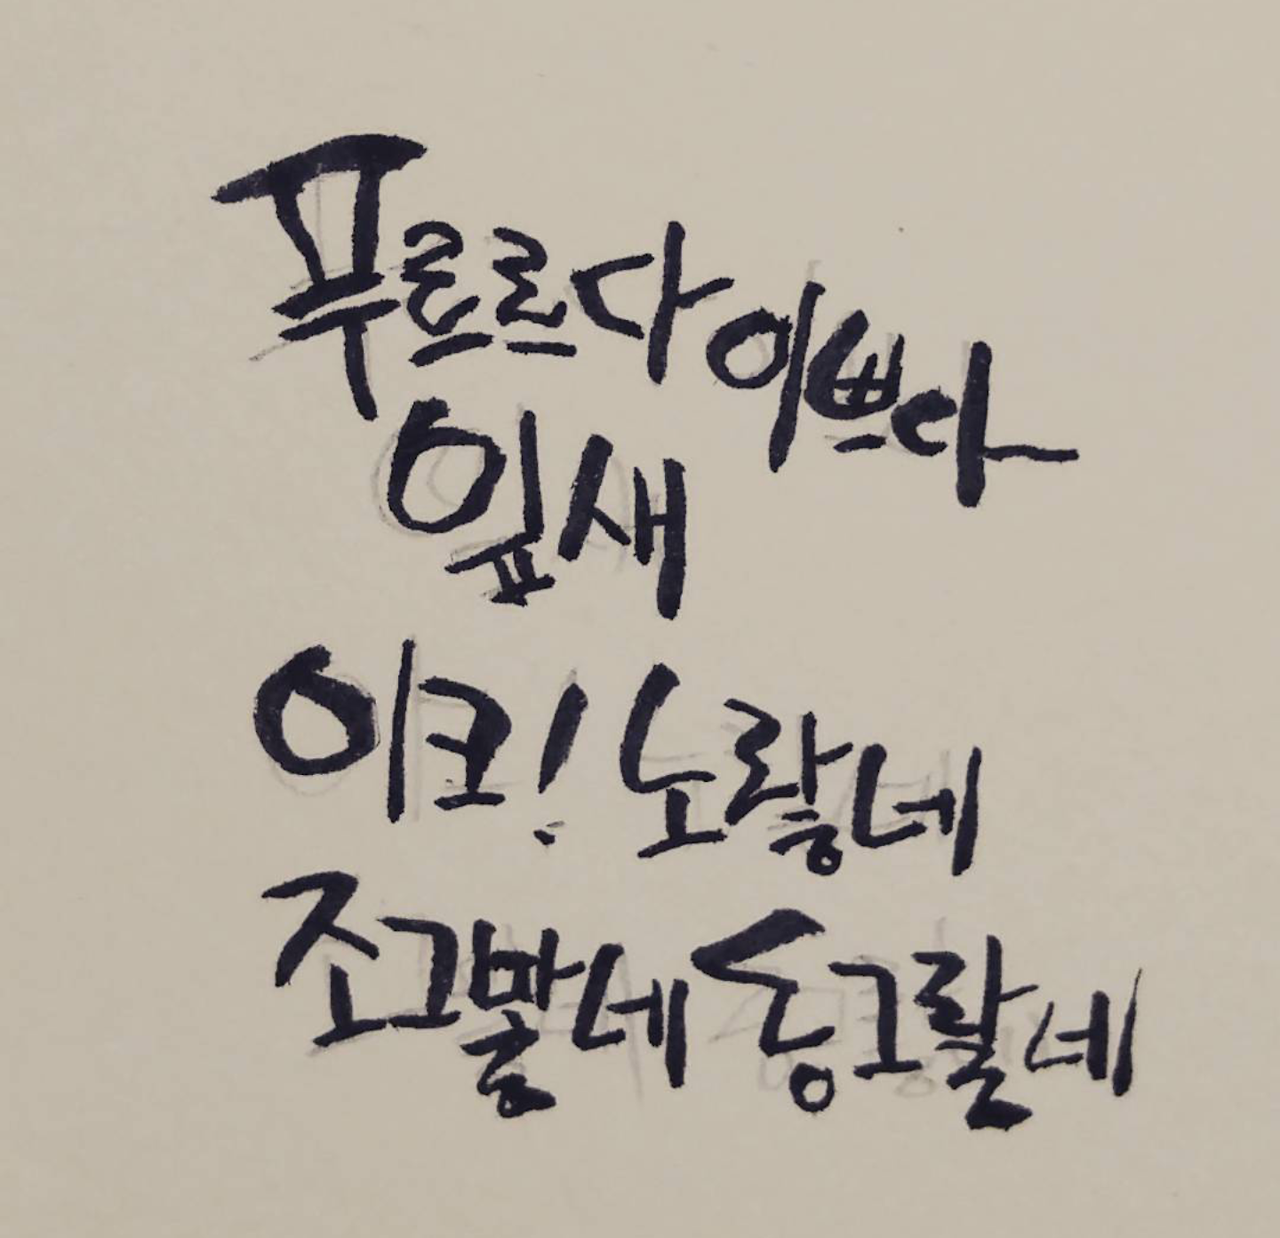 푸르르다 이쁘다
잎새
이크! 노랗네
조그맣네 동그랗네